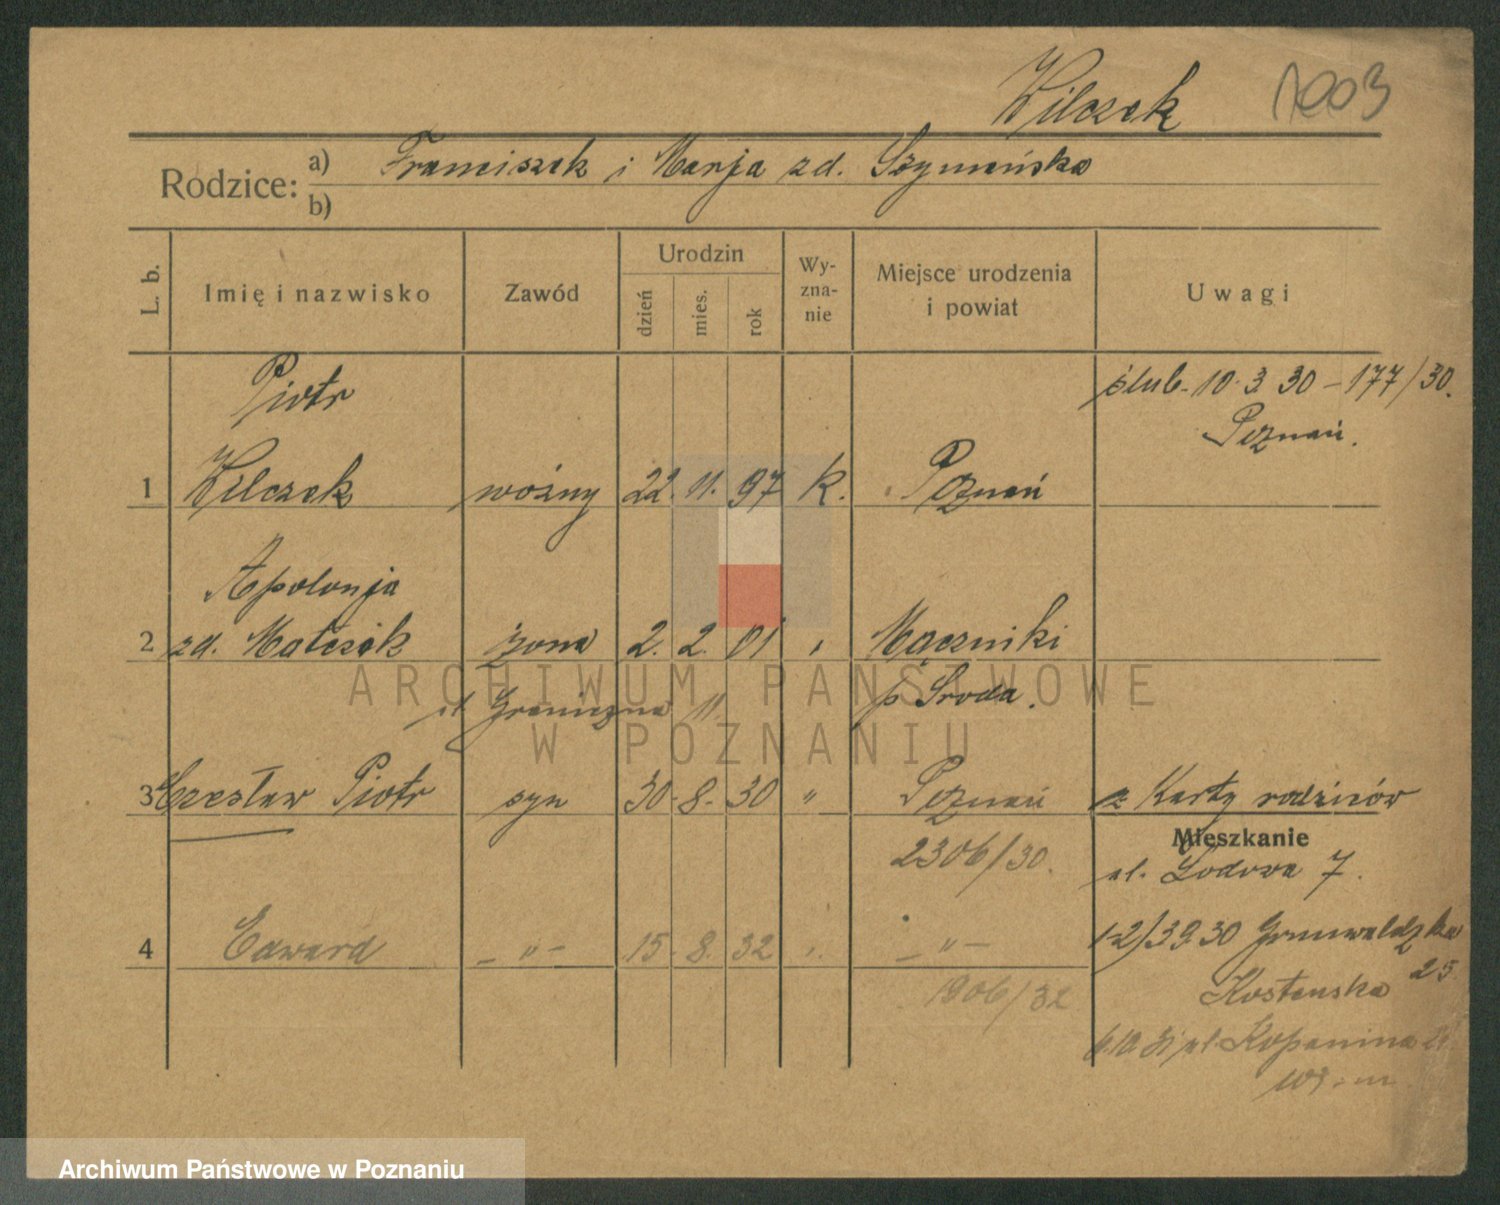 Wilczek 1003
Rodzice: a) Franciszek i Marja zd. Szymańska
b)
L. b. Imię i nazwisko Zawód Urodzin dzień mies. rok Wy-zna-nie Miejsce urodzenia i powiat Uwagi
Piotr ślub. 10.3 30 – 177/30.
Poznań.
1 Wilczek woźny 22. 11. 97 k. Poznań
Apolonja
2 zd. Matczak żona 2. 2. 01 " Mączniki
ul. Graniczna 11 p. Środa.
3 Czesław Piotr syn 30. 8. 30 " Poznań z Karty rodziców
Mieszkanie
2306/30. ul. Lodowa 7.
4 Edward – " – 15. 8. 32 " – " – 1-2/3930 Grunwaldzka 25
1806/32 Kostenska
ul. Kopanina
ARCHIWUM PAŃSTWOWE
W POZNANIU
Archiwum Państwowe w Poznaniu